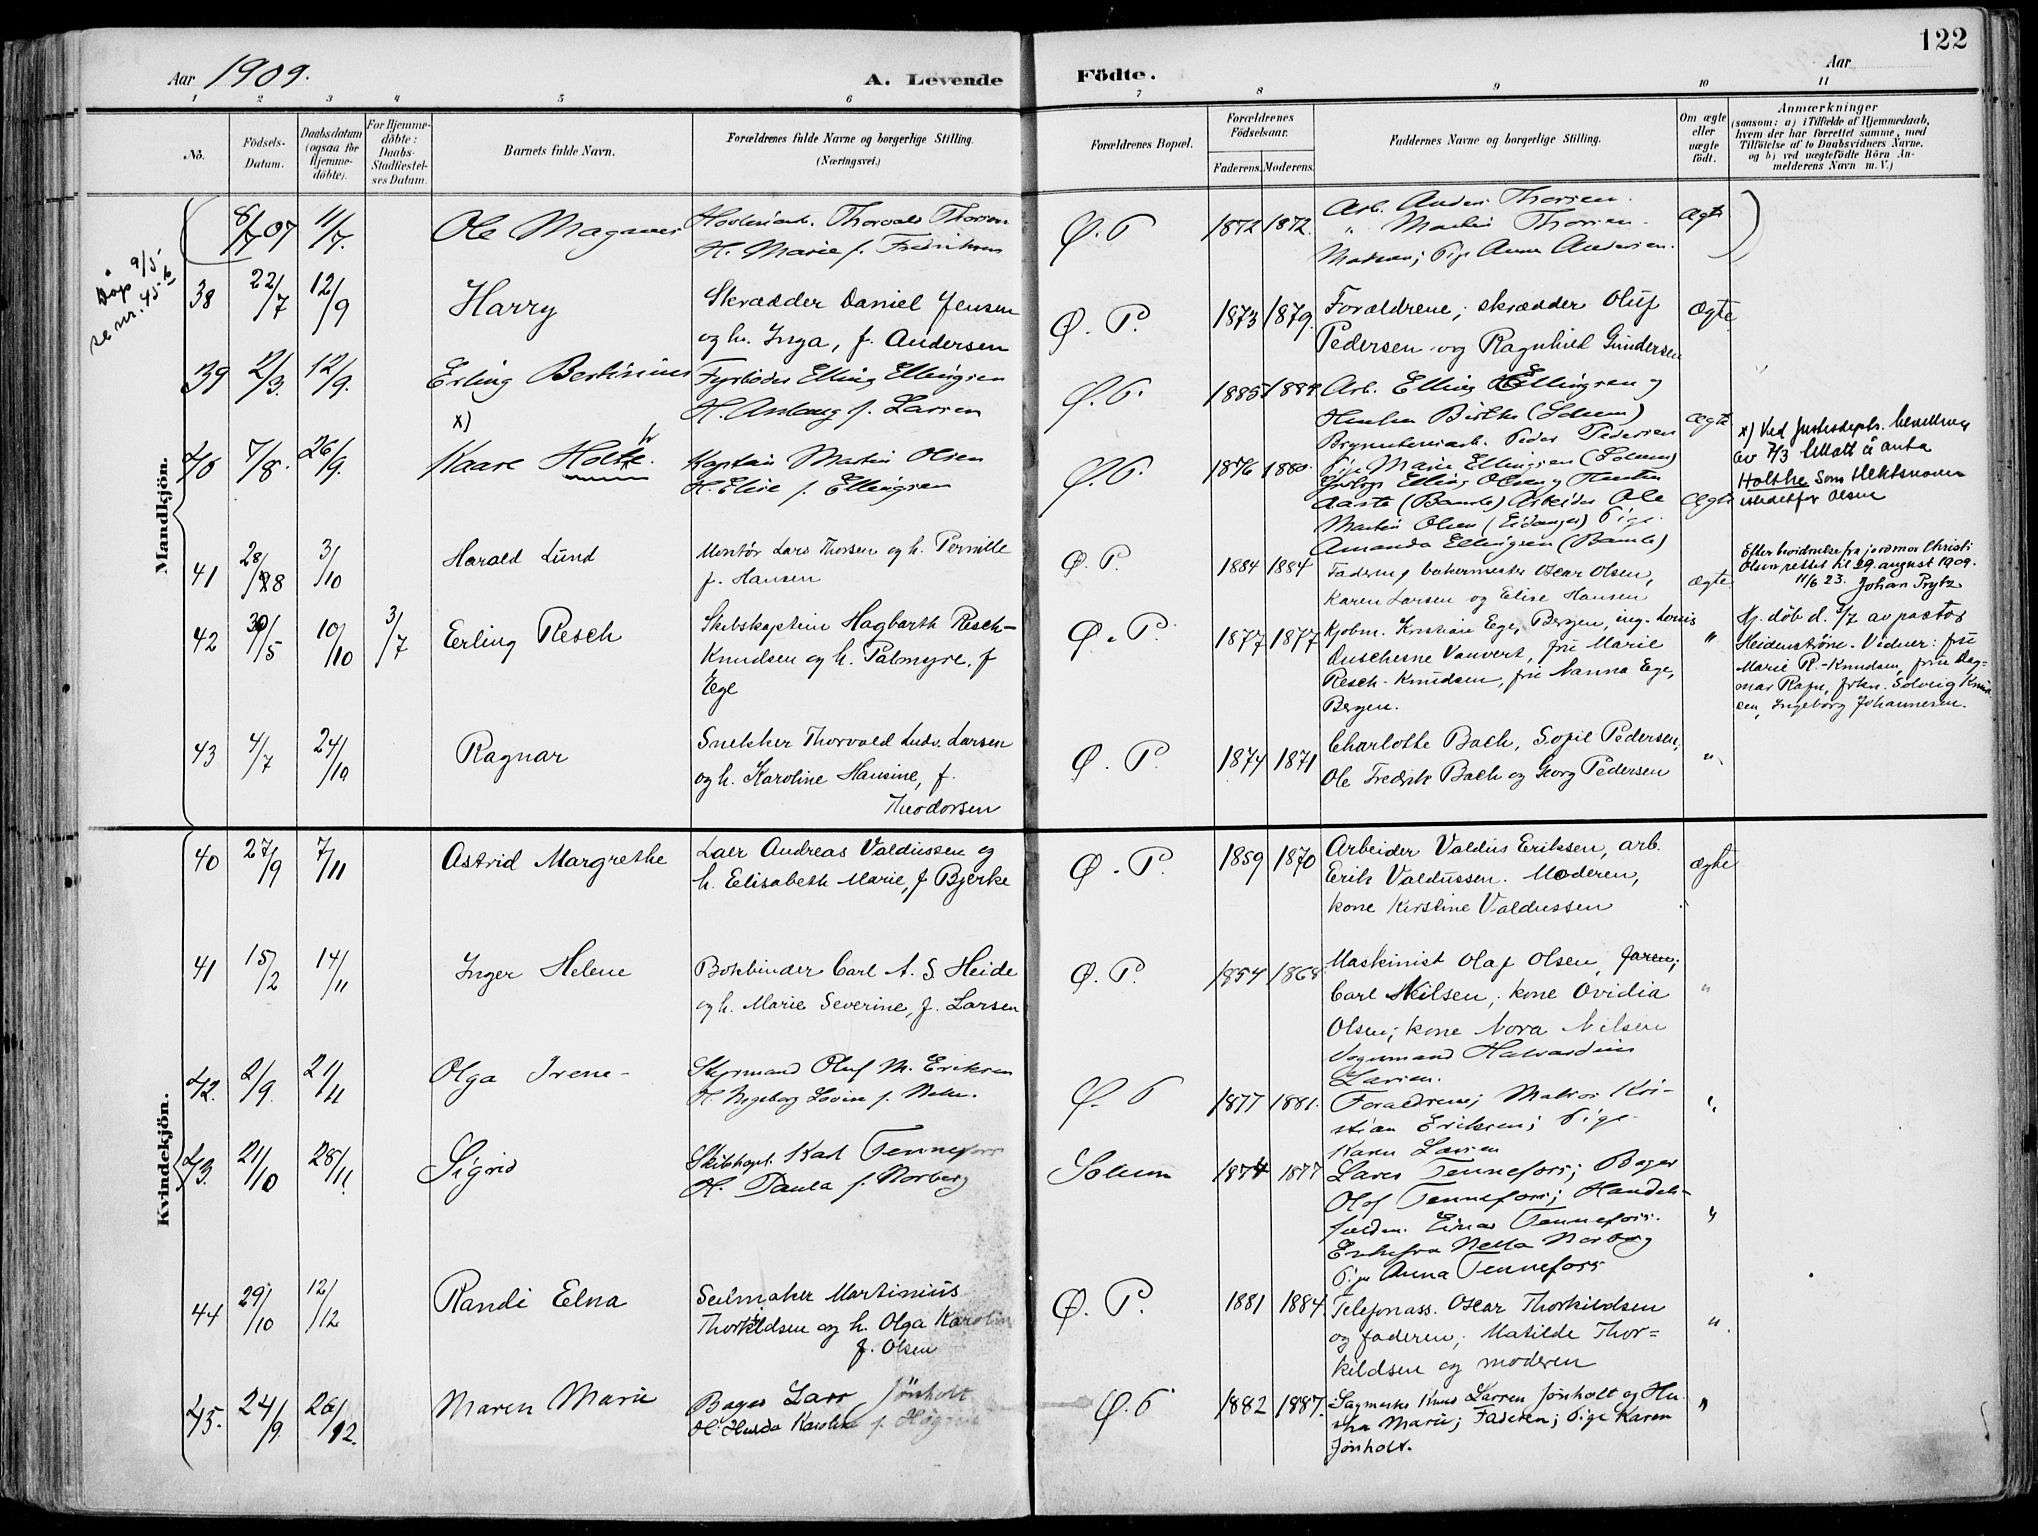 122
Aar 1909.
A. Levende Födte.
Aar
1 2 3 4 5 6 7 8 9 10 11
No.
Födsels-
Datum.
Daabsdatum
(ogsaa for
Hjemme-
döbte).
For Hjemme-
döbte:
Daabs-
Stadfæstel-
ses Datum.
Barnets fulde Navn.
Forældrenes fulde Navne og borgerlige Stilling.
(Næringsvei.)
Forældrenes Bopæl.
Forældrenes
Födselsaar.
Faderens. Moderens.
Faddernes Navne og borgerlige Stilling.
Om ægte
eller
uægte
födt.
Anmærkninger
(saasom: a) i Tilfælde af Hjemmedaab,
hvem der har forrettet samme, med
Tilföielse af to Daabsvidners Navne,
og b) ved uægtefödte Börn An-
melderens Navn m. V.)
Mandkjön.
Dåp 9/5-
se nr. 45
8/7 07 11/7.
Ole Magnus
Thorvald Thorsen
H. Marie f. Fredriksen
Ø. P
1872 1872.
Arb. Anders Thorsen.
" Martin Thorsen.
Pige Anna Andersen.
Ægte
38 22/7 12/9
Harry
Skrædder Daniel Jensen
og h. Inga, f. Andersen
Ø. P.
1873 1879.
Forældrene; skrædder Oluf
Pedersen og Ragnhild Gundersen
ægte
39 2/3. 12/9.
Erling Bertinius
Fyrböder Elling Ellingsen
H. Aslaug f. Larsen
Ø. P.
1885 1884
Arb. Elling Ellingsen og
Hustru Birthe (Solum)
Peder Pedersen
Pige Marie Ellingsen (Solum)
Ægte
40 7/8. 26/9.
x)
Kaare Holte. h
Kaptein Martin Olsen
H. Elise f. Ellingsen
Ø. P.
1876 1880.
Elling Olsen og Hustru
Aaste (Bamble) Arbeider Ole
Martin Olsen (Eidanger) Pige
Amanda Ellingsen (Bamble)
Ægte
x) Ved Justisdepts. bevilling
av 7/3 tillatt å anta
Holthe som slektsnavn
istedetfor Olsen
41 28/28 3/10
Harald Lund
Montør Lars Thorsen og h. Pernille
f. Hansen
Ø. P.
1884 1884
Faderen, bakermester Oscar Olsen,
Karen Larsen og Elise Hansen
ægte
Efter bevidnelse fra jordmor Christi
Olsen rettet til 29. august 1909.
11/6 23. Johan Prytz
42 30/5 10/10 3/7
Erling Resch
Skibskaptein Hagbarth Resch-
Knudsen og h. Palmyre, f
Ege
Ø. P.
1877 1877
Kjøbm. Kristian Ege, Bergen, ing. Louis
Duschesne Vauvert, fru Marie
Resch-Knudsen, fru Nanna Ege,
Bergen.
"
Hj. döb d. 3/7 av pastor
Heidenstrøm. Vidner: fru
Marie R.-Knudsen, fru Dag-
mar Rafn, frkn. Solveig Knud
sen, Ingeborg Johannesen.
43 4/7 24/10
Ragnar
Snekker Thorvald Ludv. Larsen
og h. Karoline Hansine, f.
Theodorsen
Ø. P.
1874 1871
Charlotte Bach, Sofie Pedersen,
Ole Fredrik Bach og Georg Pedersen
"
Kvindekjön.
40 27/9 7/11
Astrid Margrethe
Laer Andreas Valdussen og
h. Elisabeth Marie, f Bjerke
Ø. P.
1859 1870
Arbeider Valdus Eriksen, arb.
Erik Valdussen. Moderen,
kone Kirstine Valdussen
ægte
41 15/2 14/11
Inger Helene
Bokbinder Carl A. S Heide
og h. Marie Severine, f. Larsen
Ø. P.
1854 1868
Maskinist Olaf Olsen,
Carl Nilsen, kone Ovidia
Olsen; kone Nora Nilsen
Vognmand Halvardius
Larsen.
"
42. 2/9. 21/11
Olga Irene-
Styrmand Oluf M. Eriksen
H. Ingeborg Lovise f. Nilsen.
Ø. P
1877 1881.
Forældrene; Matros Kri-
stian Eriksen; Pige
Karen Larsen
"
43. 21/10 28/11.
Sigrid
Skibskapt. Karl Tennefoss
H. Paula f. Norberg
Solum
1874 1877
Lars Tennefoss; Bager
Olaf Tennefoss; Handels-
Einar Tennefoss.
Enkefru Netta Norberg
Pige Anna Tennefoss
"
44 29/10 12/12
Randi Elna
Seilmaker Martinius
Thorkildsen og h. Olga Karoline
f. Olsen
Ø. P.
1881 1884.
Telefonass. Oscar Thorkildsen
og faderen; Matilde Thor=
kildsen og moderen
"
45. 24/9. 26/12.
Maren Marie
Bager Lars Jønholt
H. Hulda Karoline f.
Ø. P
1882 1887.
Sagmester Knud Larsen Jønholt og Hu-
stru Marie; Faderen; Pige Karen
Jønholt.
"